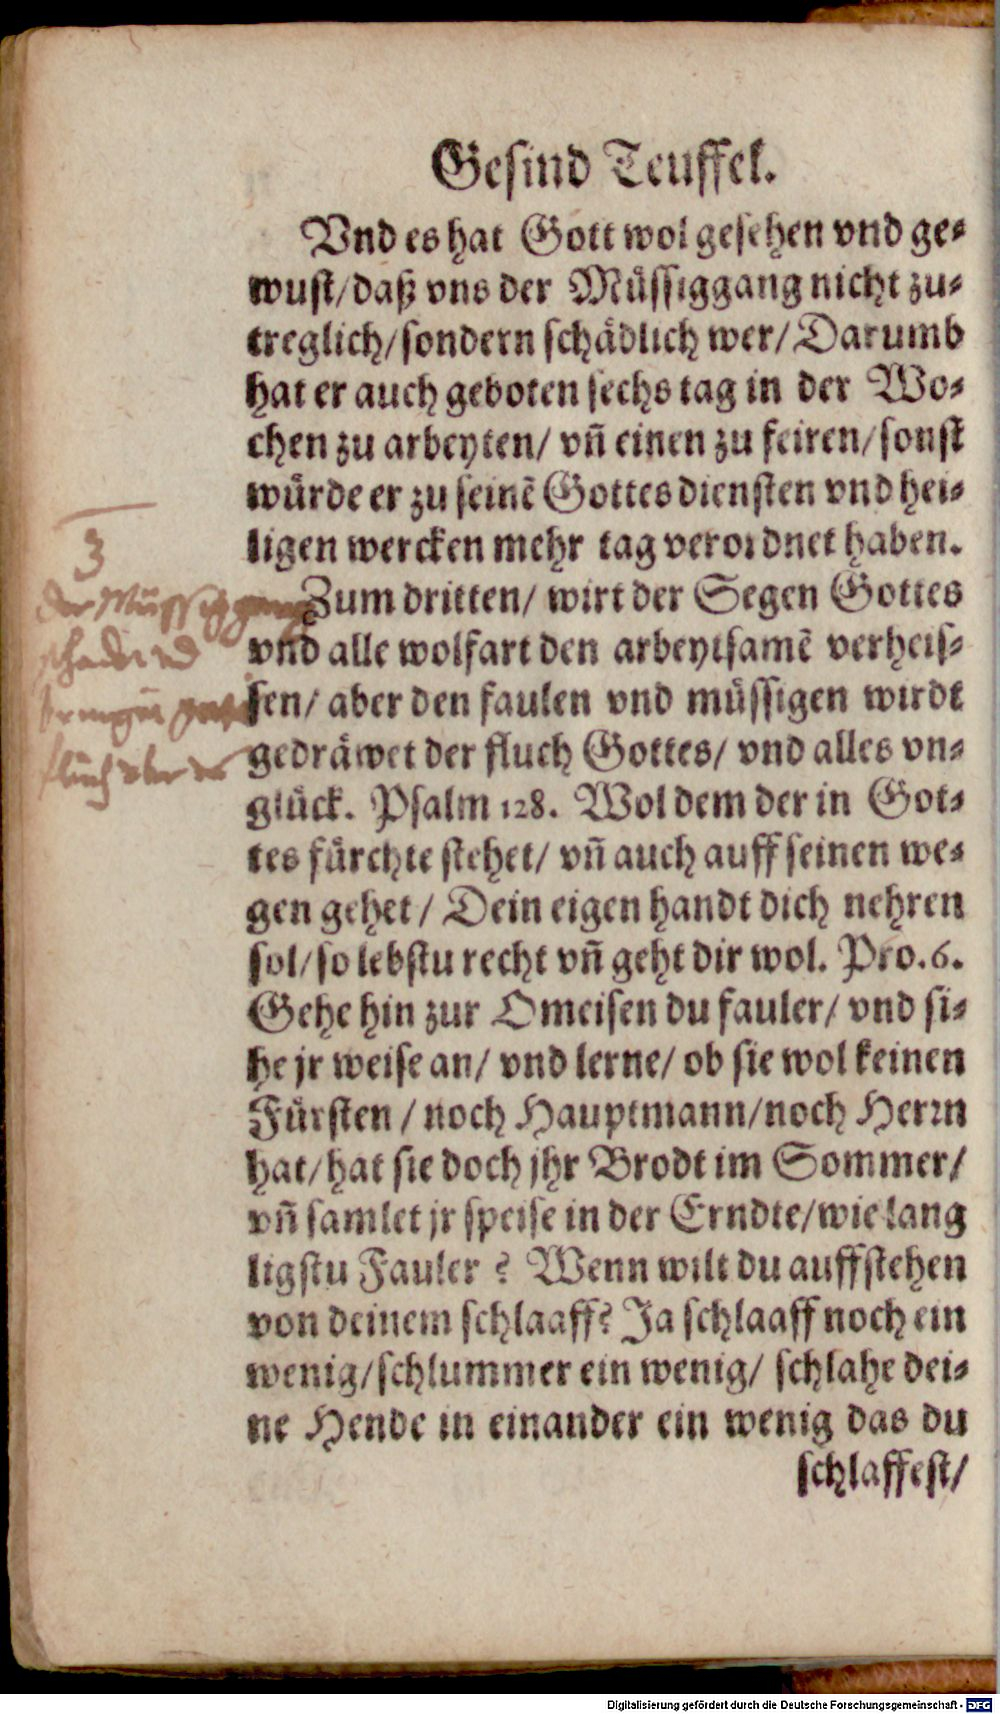 Gesind Teuffel.
Vnd es hat Gott wol gesehen vnd ge-
wust/daß vns der Müssiggang nicht zu-
treglich/sondern schädlich wer/Darumb
hat er auch geboten sechs tag in der Wo-
chen zu arbeyten/ vñ einen zu feiren/sonst
würde er zu seinẽ Gottes diensten vnd hei-
ligen wercken mehr tag verordnet haben.
3
der Müssiggang
Zum dritten/ wirt der Segen Gottes
vnd alle wolfart den arbeytsamẽ verheis-
sen/ aber den faulen vnd müssigen wirdt
gedräwet der fluch Gottes/ vnd alles vn-
fluch uber
glück. Psalm 128. Wol dem der in Got-
tes fürchte stehet/ vñ auch auff seinen we-
gen gehet/ Dein eigen handt dich nehren
sol/so lebstu recht vñ geht dir wol. Pro.6.
Gehe hin zur Omeisen du fauler/ vnd si-
he jr weise an/ vnd lerne/ ob sie wol keinen
Fürsten/ noch Hauptmann/noch Herrn
hat/hat sie doch jhr Brodt im Sommer/
vñ samlet jr speise in der Erndte/wie lang
ligstu Fauler? Wenn wilt du auffstehen
von deinem schlaaff? Ja schlaaff noch ein
wenig/schlummer ein wenig/ schlahe dei-
ne Hende in einander ein wenig das du
schlaffest/
Digitalisierung gefördert durch die Deutsche Forschungsgemeinschaft - DFG